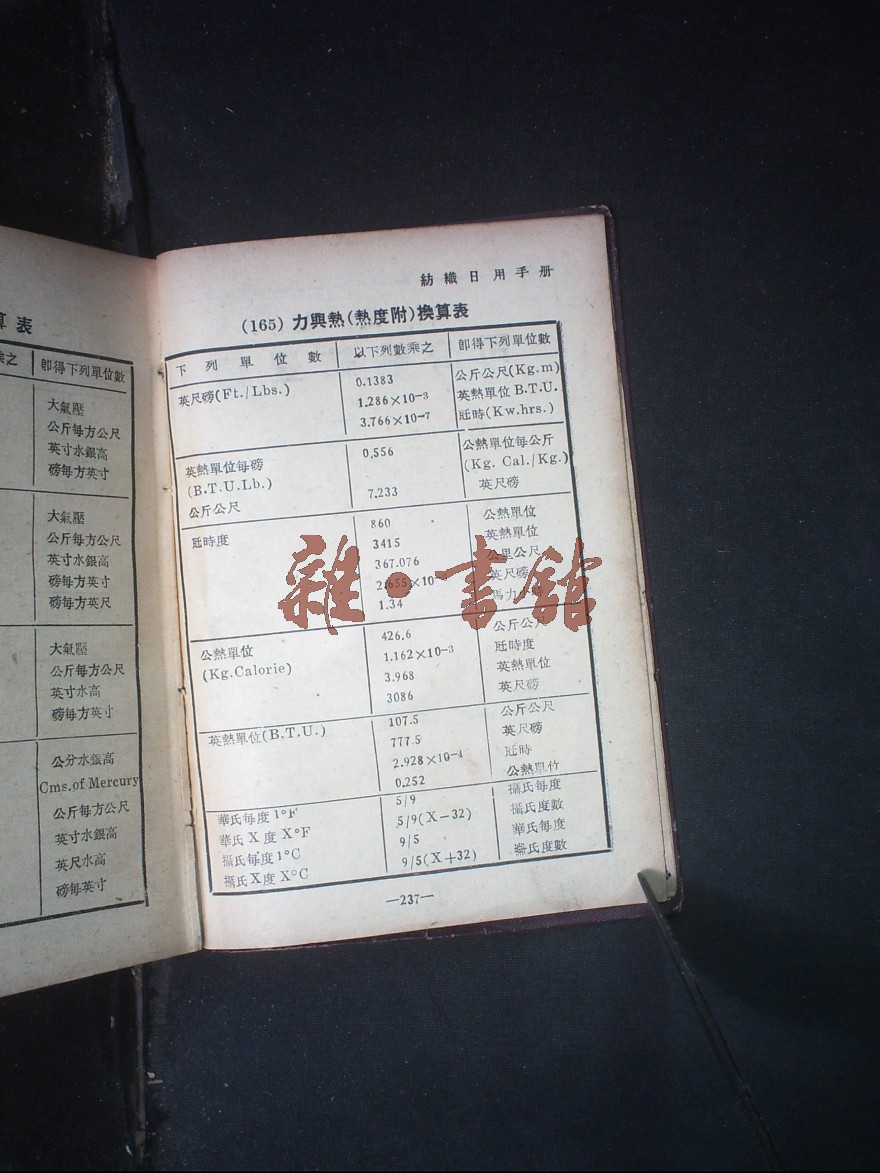 算表
乘之 即得下列單位數
大氣壓
公斤每方公尺
英寸水銀高
磅每方英寸
大氣壓
公斤每方公尺
英寸水銀高
磅每方英寸
磅每方英尺
大氣壓
公斤每方公尺
英寸水高
磅每方英寸
公分水銀高
Cms.of Mercury
公斤每方公尺
英寸水銀高
英尺水高
磅每英寸
紡織日用手册
(165) 力與熱(熱度附)換算表
下列單位數 以下列數乘之 即得下列單位數
英尺磅(Ft./Lbs.) 0.1383 公斤公尺(Kg.m)
1.286×10-3 英熱單位B.T.U.
3.766×10-7 瓩時(Kw.hrs.)
英熱單位每磅 0.556 公熱單位每公斤
(B.T.U.Lb.) (Kg. Cal./Kg.)
公斤公尺 7.233 英尺磅
瓩時度 860 公熱單位
3415 英熱單位
367.076 公里公尺
2.655×10 英尺磅
1.34 馬力小時
公熱單位 426.6 公斤公尺
(Kg.Calorie) 1.162×10-3 瓩時度
3.968 英熱單位
3086 英尺磅
英熱單位(B.T.U.) 107.5 公斤公尺
777.5 英尺磅
2.928×10-4 瓩時
0.252 公熱單位
華氏每度1°F 5/9 攝氏每度
華氏X度X°F 5/9(X-32) 攝氏度數
攝氏每度1°C 9/5 華氏每度
攝氏X度X°C 9/5(X+32) 氏度數
—237—
雜·書館